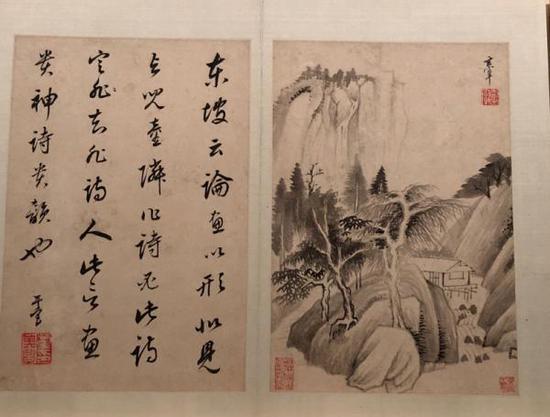 東坡云論畫以形似見
與兒童隣作詩必此詩
定非知詩人此言畫
貴神詩貴韻也
玄宰